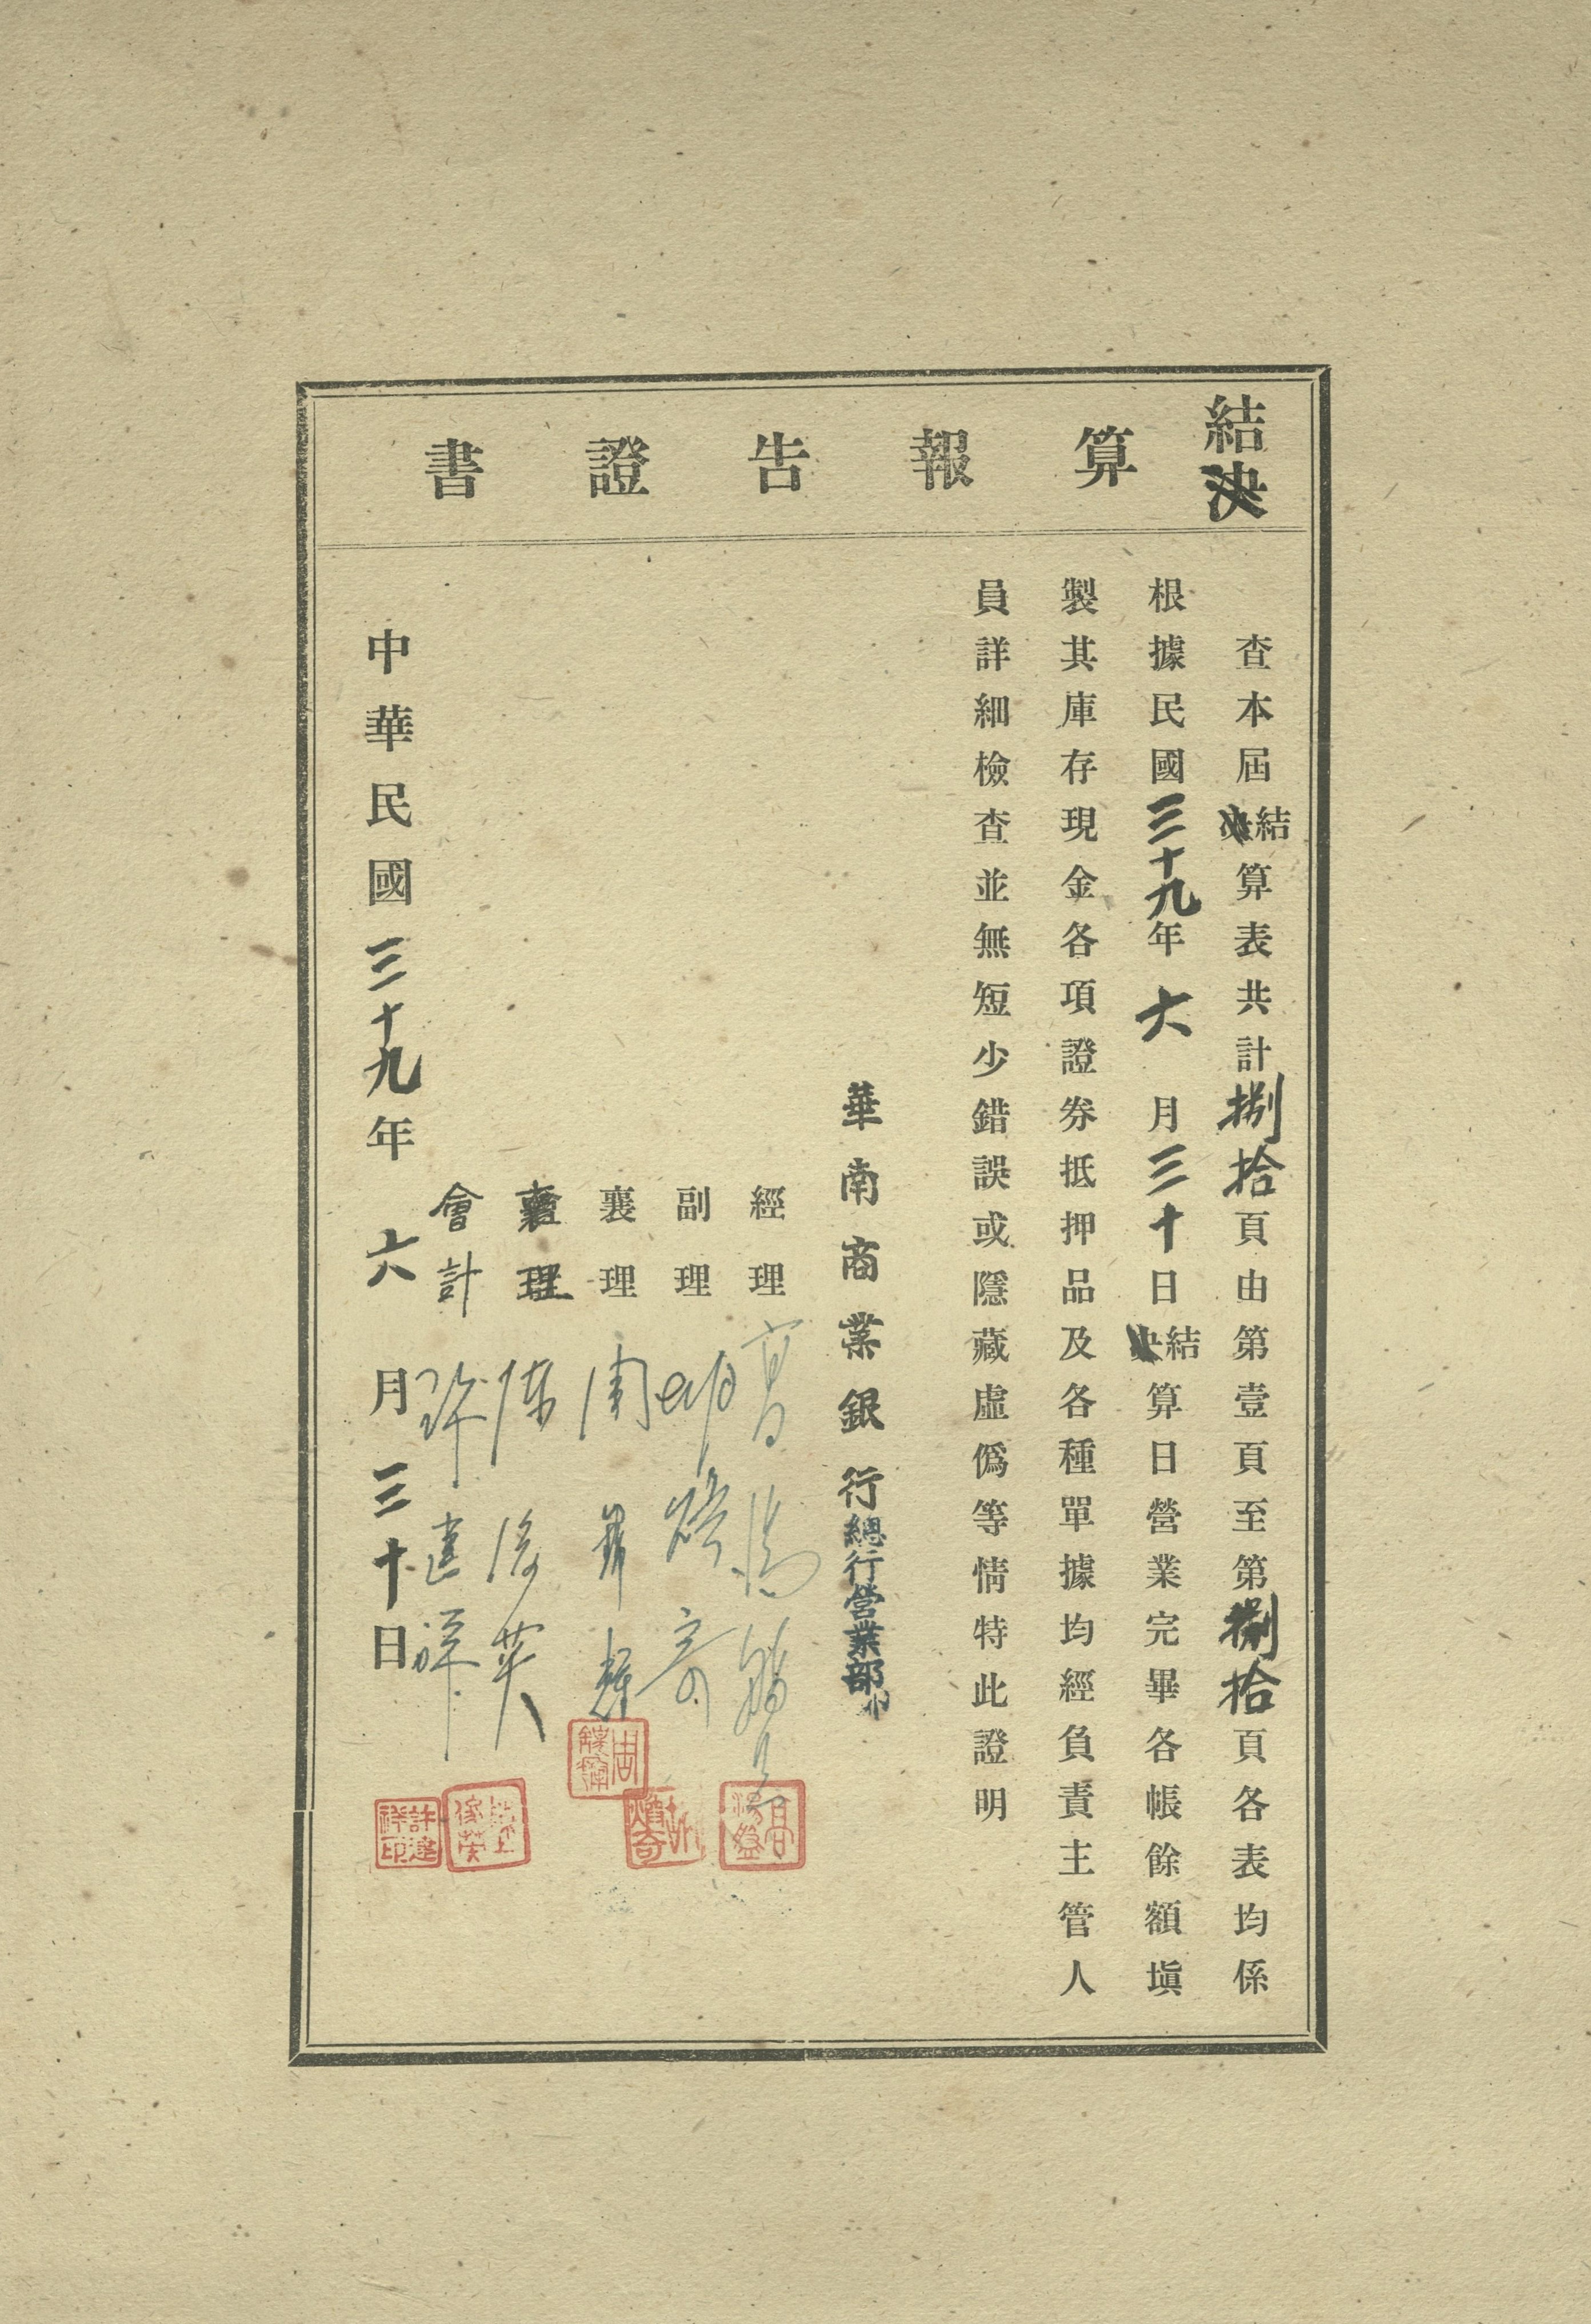 結決算報告證書
查本屆結決算表共計捌拾頁由第壹頁至第捌拾頁各表均係
根據民國三十九年六月三十日結決算日營業完畢各帳餘額塡
製其庫存現金各項證券抵押品及各種單據均經負責主管人
員詳細檢查並無短少錯誤或隱藏虛僞等情特此證明
華南商業銀行總行營業部
經理 高湯盤
副理 胡煥奇
襄理 周
襄理 陳俊英
會計 許建祥
中華民國三十九年六月三十日
許建祥印